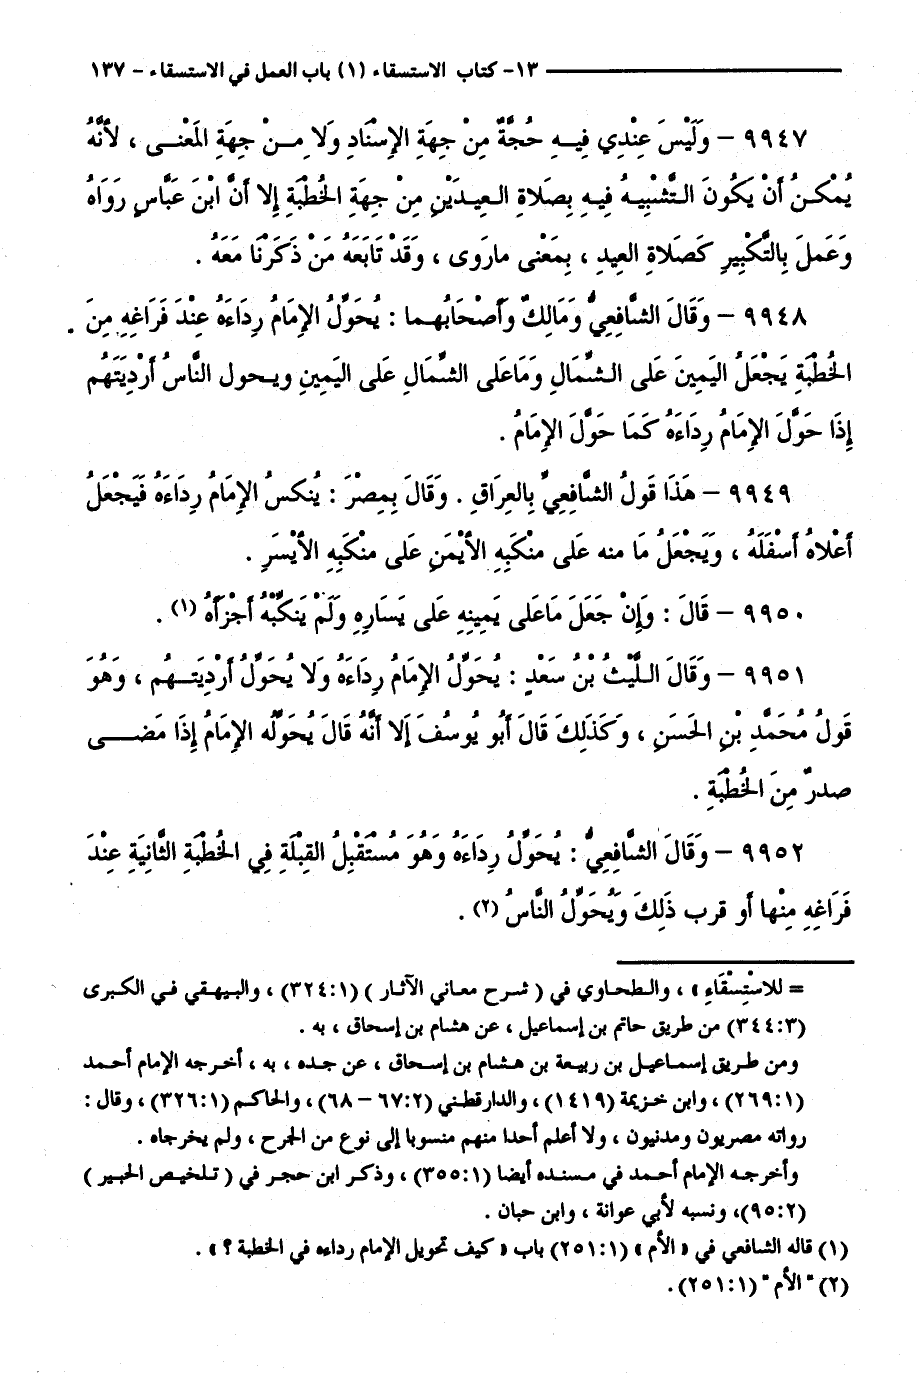 ١٣- كتاب الاستسقاء (١) باب العمل في الاستسقاء - ١٣٧
٩٩٤٧ - وَلَيْسَ عِنْدِي فِيهِ حُجَّةٌ مِنْ جِهَةِ الإِسْنَادِ وَلَا مِنْ جِهَةِ المَعْنى ، لأَنَّهُ
يُمْكنُ أَنْ يَكُونَ التَّشْبِيهُ فِيهِ بِصَلاةِ العِيدَيْنِ مِنْ جِهَةِ الخُطْبَةِ إِلا أَنَّ ابْنَ عَبَّاسٍ رَوَاهُ
وَعَمِلَ بِالتَّكْبِيرِ كَصَلاةِ العِيدِ ، بِمَعْنى مارَوى ، وَقَدْ تَابَعَهُ مَنْ ذَكَرْنَا مَعَهُ .
٩٩٤٨ - وَقَالَ الشَّافِعِيُّ وَمَالِكٌ وَأَصْحَابُهُما : يُحَوِّلُ الإِمَامُ رِدَاءَهُ عِنْدَ فَرَاغِهِ مِنَ
الخُطْبَةِ يَجْعَلُ اليَمِينَ عَلى الشِّمَالِ وَمَاعَلى الشِّمَالِ عَلى اليَمِينِ ويحول النَّاسُ أَرْدِيَتَهُم
إِذَا حَوَّلَ الإِمَامُ رِدَاءَهُ كَمَا حَوَّلَ الإِمَامُ .
٩٩٤٩ - هَذَا قَولُ الشَّافِعِيِّ بِالعِرَاقِ . وَقَالَ بِمِصْرَ : يُنكسُ الإِمَامُ رِدَاءَهُ فَيَجْعَلُ
أَعْلاهُ أَسْفَلَهُ ، وَيَجْعَلُ مَا منه عَلى منْكَبِهِ الأَيْمَنِ عَلى منْكَبِهِ الأَيْسَرِ .
٩٩٥٠ - قَالَ : وَإِنْ جَعَلَ مَاعَلى يَمِينِهِ عَلى يَسَارِهِ وَلَمْ يَنَكِّبْهُ أَجْزَأَهُ (١) .
٩٩٥١ - وَقَالَ اللَّيْثُ بْنُ سَعْدٍ : يُحَوِّلُ الإِمَامُ رِدَاءَهُ وَلا يُحَوِّلُ أَرْدِيَتَهُم ، وَهُوَ
قَولُ مُحَمَّدِ بْنِ الحَسَنِ ، وَكَذَلِكَ قَالَ أَبُو يُوسُفَ إِلا أَنَّهُ قَالَ يُحَوِّلُه الإِمَامُ إِذَا مَضى
صدرٌ مِنَ الخُطْبَةِ .
٩٩٥٢ - وَقَالَ الشَّافِعِيُّ : يُحَوِّلُ رِدَاءَهُ وَهُوَ مُسْتَقْبِلُ القِبْلَةِ فِي الخُطْبَةِ الثَّانِيَةِ عِنْدَ
فَرَاغِهِ مِنْها أَو قرب ذَلِكَ وَيُحَوِّلُ النَّاسُ (٢) .
= للاسْتِسْقَاءِ » ، والطحاوي في ( شرح معاني الآثار ) (٣٢٤:١) ، والبيهقي في الكبرى
(٣٤٤:٣) من طريق حاتم بن إسماعيل ، عن هشام بن إسحاق ، به .
ومن طريق إسماعيل بن ربيعة بن هشام بن إسحاق ، عن جده ، به ، أخرجه الإمام أحمد
(٢٦٩:١) ، وابن خزيمة (١٤١٩) ، والدارقطني (٦٧:٢ - ٦٨) ، والحاكم (٣٢٦:١) ، وقال :
رواته مصريون ومدنيون ، ولا أعلم أحدا منهم منسوبا إلى نوع من الجرح ، ولم يخرجاه .
وأخرجه الإمام أحمد في مسنده أيضا (٣٥٥:١) ، وذكر ابن حجر في ( تلخيص الحبير )
(٩٥:٢)، ونسبه لأبي عوانة ، وابن حبان .
(١) قاله الشافعي في « الأم » (٢٥١:١) باب « كيف تحويل الإمام رداءه في الخطبة ؟ » .
(٢) " الأم " (٢٥١:١) .